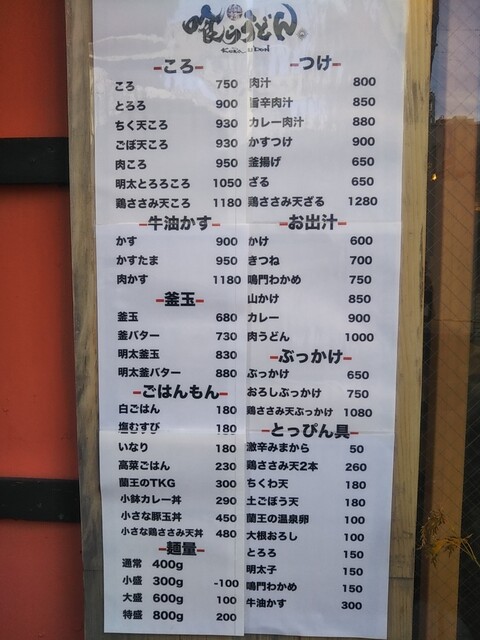 喰らうどん
ころ
ころ 750
とろろ 900
ちく天ころ 930
ごぼ天ころ 930
肉ころ 950
明太とろろころ 1050
鶏ささみ天ころ 1180
牛油かす
かす 900
かすたま 950
肉かす 1180
釜玉
釜玉 680
釜バター 730
明太釜玉 830
明太釜バター 880
ごはんもん
白ごはん 180
塩むすび 180
いなり 180
高菜ごはん 230
蘭王のTKG 300
小鉢カレー丼 290
小さな豚玉丼 450
小さな鶏ささみ天丼 480
麺量
通常 400g
小盛 300g -100
大盛 600g 100
特盛 800g 200
つけ
肉汁 800
旨辛肉汁 850
カレー肉汁 880
かすつけ 900
釜揚げ 650
ざる 650
鶏ささみ天ざる 1280
お出汁
かけ 600
きつね 700
鳴門わかめ 750
山かけ 850
カレー 900
肉うどん 1000
ぶっかけ
ぶっかけ 650
おろしぶっかけ 750
鶏ささみ天ぶっかけ 1080
とっぴん具
激辛みまから 50
鶏ささみ天2本 260
ちくわ天 180
土ごぼう天 180
蘭王の温泉卵 100
大根おろし 100
とろろ 150
明太子 150
鳴門わかめ 150
牛油かす 300